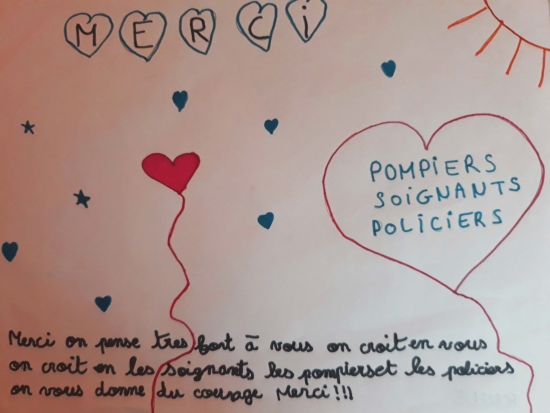 MERCi
POMPiERS
SOiGNANTS
POLiCiERS
Merci on pense tres fort à vous on croit en vous
on croit en les soignants les pompierset les policiers
on vous donne du courage Merci!!!